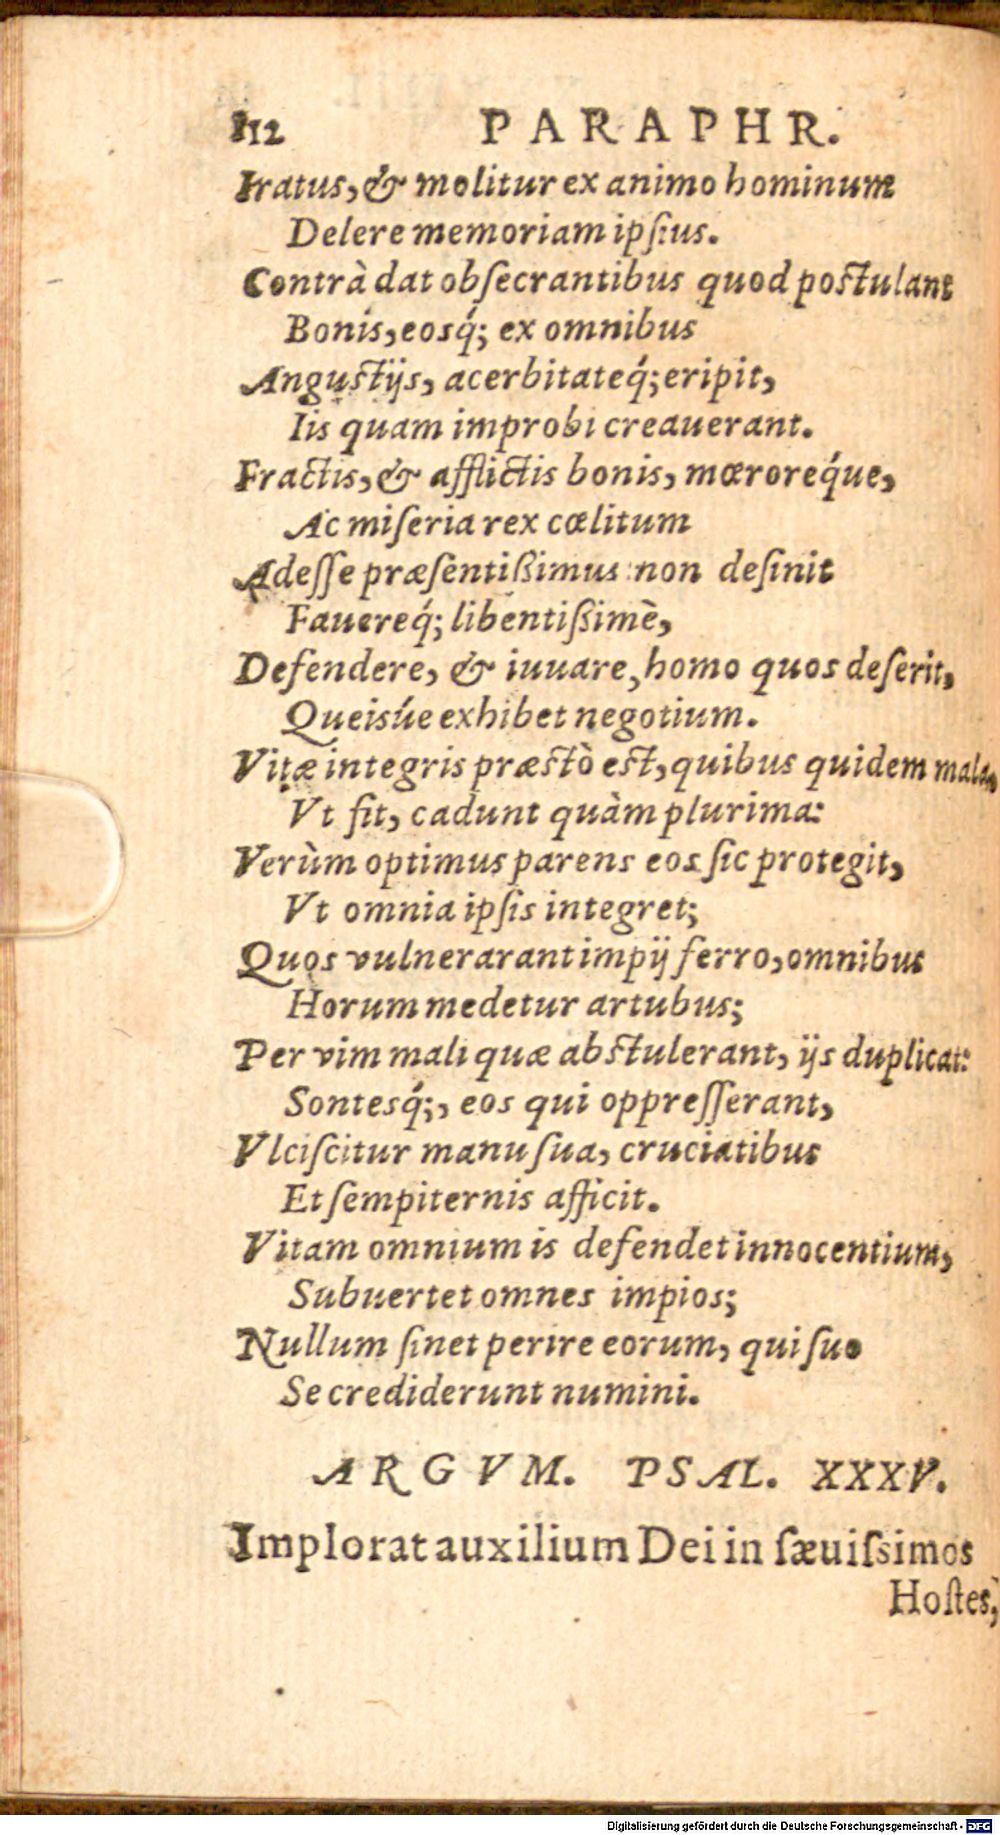 112 PARAPHR.
Iratus, & molitur ex animo hominum
Delere memoriam ipsius.
Contrà dat obsecrantibus quod postulant
Bonis, eosq́; ex omnibus
Angustijs, acerbitateq́; eripit,
Iis quam improbi creauerant.
Fractis, & afflictis bonis, mœroreq́ue,
Ac miseria rex cœlitum
Adesse præsentißimus non desinit
Fauereq́; libentißimè,
Defendere, & iuuare, homo quos deserit,
Queisúe exhibet negotium.
Vitæ integris præstò est, quibus quidem mala,
Vt fit, cadunt quàm plurima:
Verùm optimus parens eos sic protegit,
Vt omnia ipsis integret;
Quos vulnerarant impij ferro, omnibus
Horum medetur artubus;
Per vim mali quæ abstulerant, ijs duplicat:
Sontesq́;, eos qui oppresserant,
Vlciscitur manu sua, cruciatibus
Et sempiternis afficit.
Vitam omnium is defendet innocentium,
Subuertet omnes impios;
Nullum sinet perire eorum, qui suo
Se crediderunt numini.
ARGVM. PSAL. XXXV.
Implorat auxilium Dei in sæuissimos
Hostes,
Digitalisierung gefördert durch die Deutsche Forschungsgemeinschaft - DFG